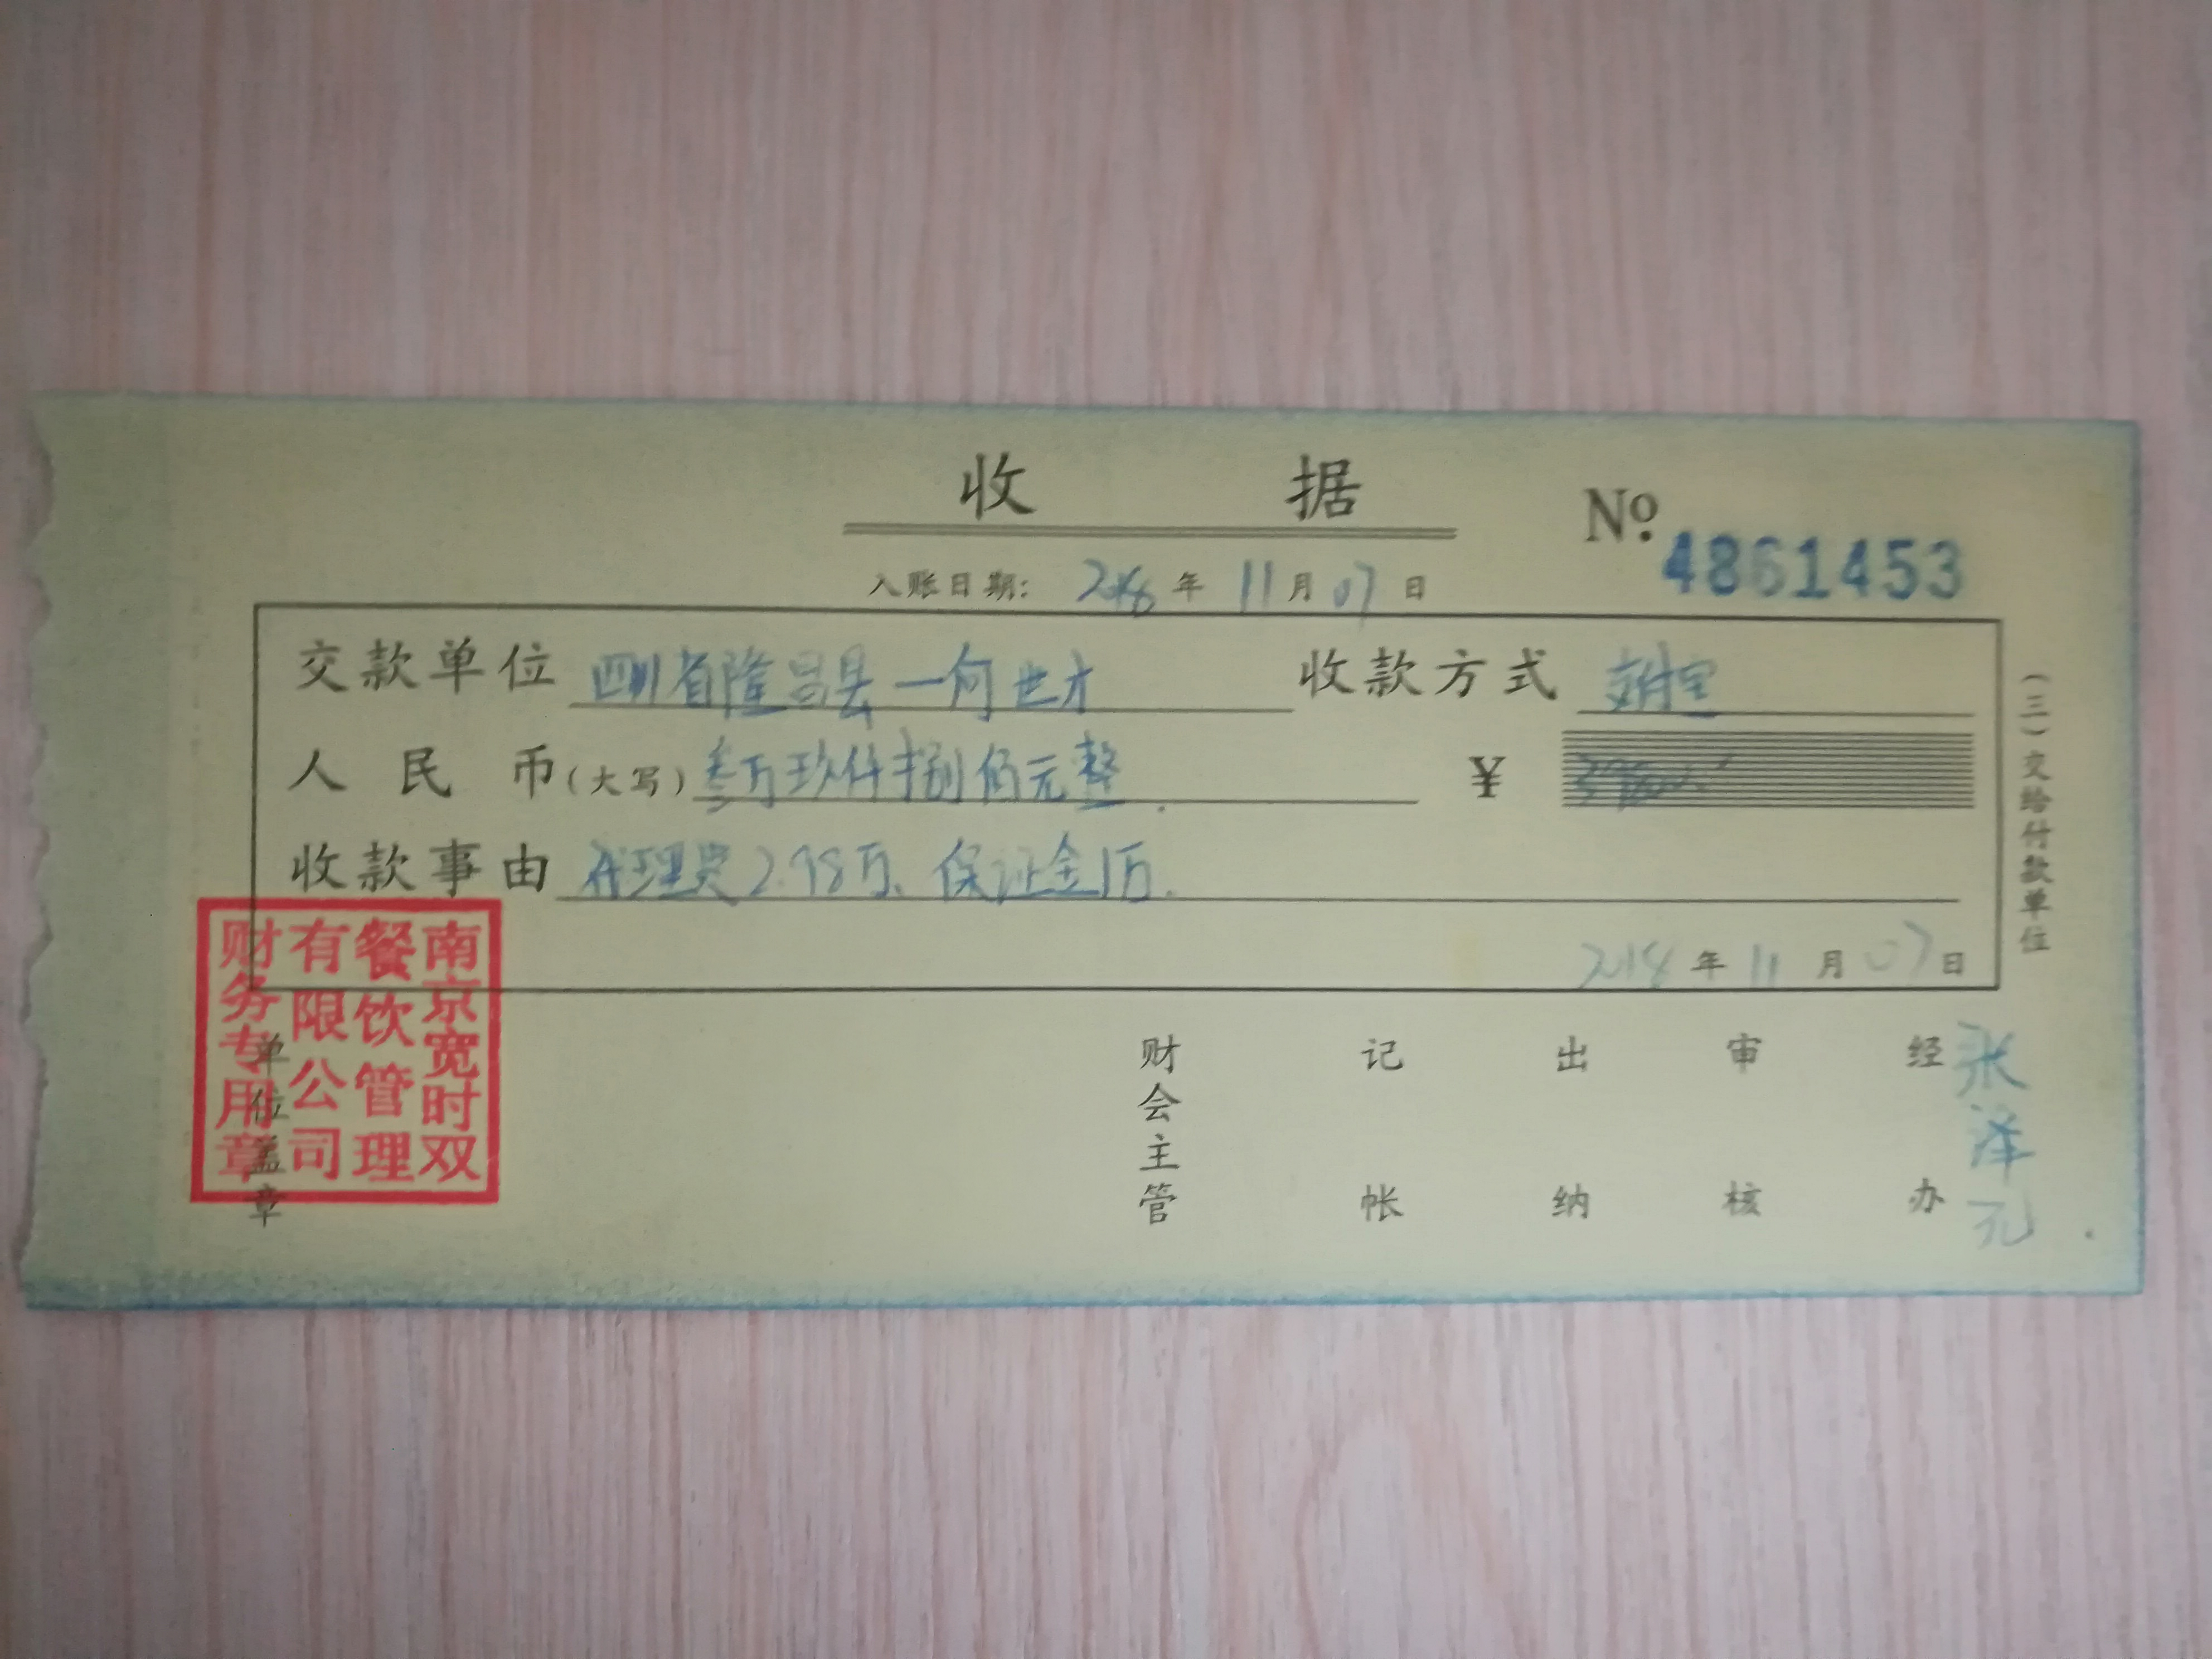 收 据
No. 4861453
入账日期: 2018 年 11 月 07 日
交款单位 四川省隆昌县一何世才 收款方式 支付宝
人民币(大写) 叁万玖仟捌佰元整. ¥
收款事由 代理费2.98万、保证金1万.
2018 年 11 月 07 日
(三)交给付款单位
南京宽时双
餐饮管理
有限公司
财务专用章
单位盖章 财会主管 记帐 出纳 审核 经办 张泽元